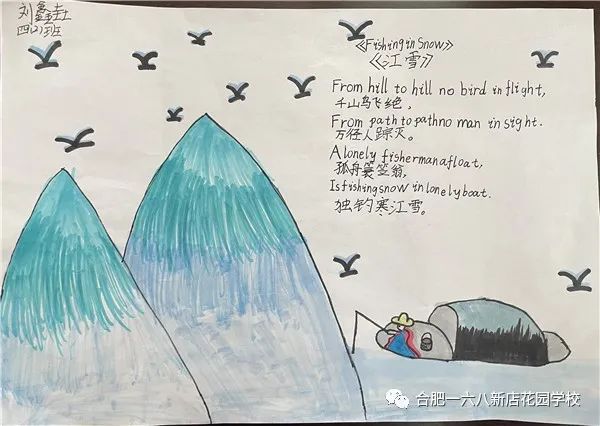 刘鑫喆
四(2)班
《Fishing in Snow》
《江雪》
From hill to hill no bird in flight,
千山鸟飞绝,
From path to path no man in sight.
万径人踪灭。
A lonely fisherman afloat,
孤舟蓑笠翁,
Is fishing snow in lonely boat.
独钓寒江雪。
合肥一六八新店花园学校